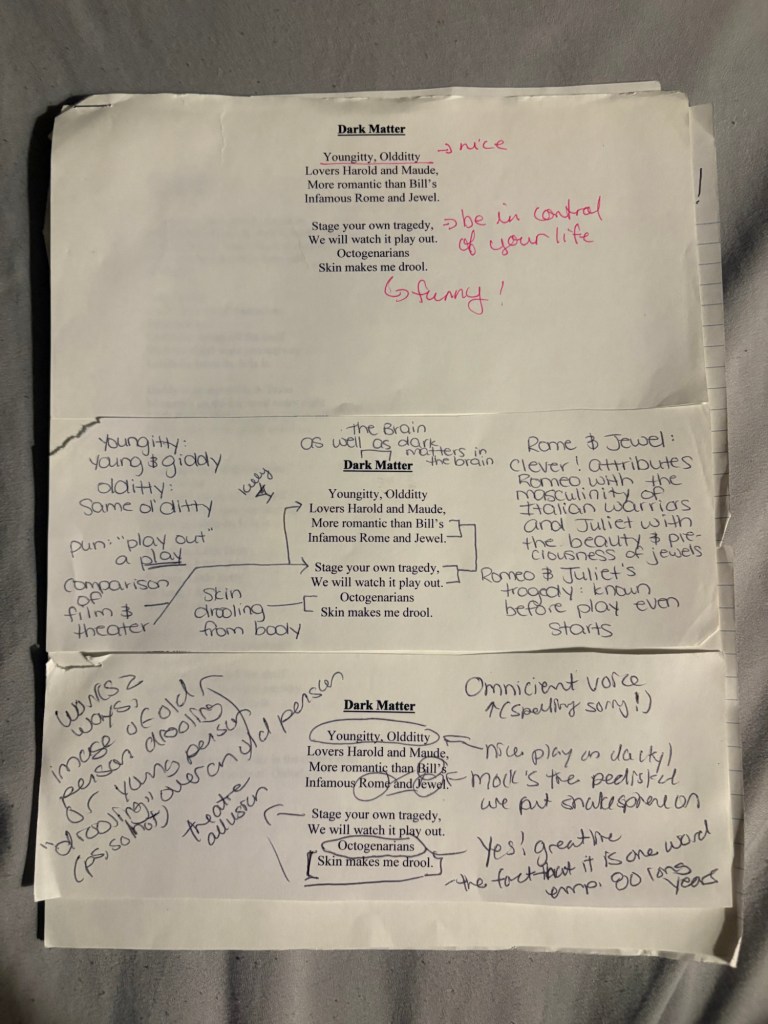 Dark Matter
Youngitty, Oldditty → nice
Lovers Harold and Maude,
More romantic than Bill's
Infamous Rome and Jewel.
Stage your own tragedy, → be in control
We will watch it play out. of your life
Octogenarians
Skin makes me drool.
↳ funny!
!
Youngitty:
young & giddy
olditty:
Same ol' ditty
pun: "play out"
a play
Comparison
of
film &
theater
Skin
drooling
from body
Kelly
the Brain
as well as dark
matters in
the brain
Dark Matter
Youngitty, Oldditty
Lovers Harold and Maude,
More romantic than Bill's
Infamous Rome and Jewel.
Stage your own tragedy,
We will watch it play out.
Octogenarians
Skin makes me drool.
Rome & Jewel:
Clever! attributes
Romeo with the
masculinity of
Italian warriors
and Juliet with
the beauty & pre-
ciousness of jewels
Romeo & Juliet's
tragedy: known
before play even
starts
works 2
ways:
image of old
person drooling
or young person
"drooling" over an old person
(ps, so hot)
theatre
allusion
Dark Matter
Youngitty, Oldditty
Lovers Harold and Maude,
More romantic than Bill's
Infamous Rome and Jewel.
Stage your own tragedy,
We will watch it play out.
Octogenarians
Skin makes me drool.
Omnicient voice
↑ (spelling sorry!)
nice play on dactyl
Mock's the pedistal
we put shakesphere on
Yes! great line
- the fact that it is one word
emp. 80 long
years